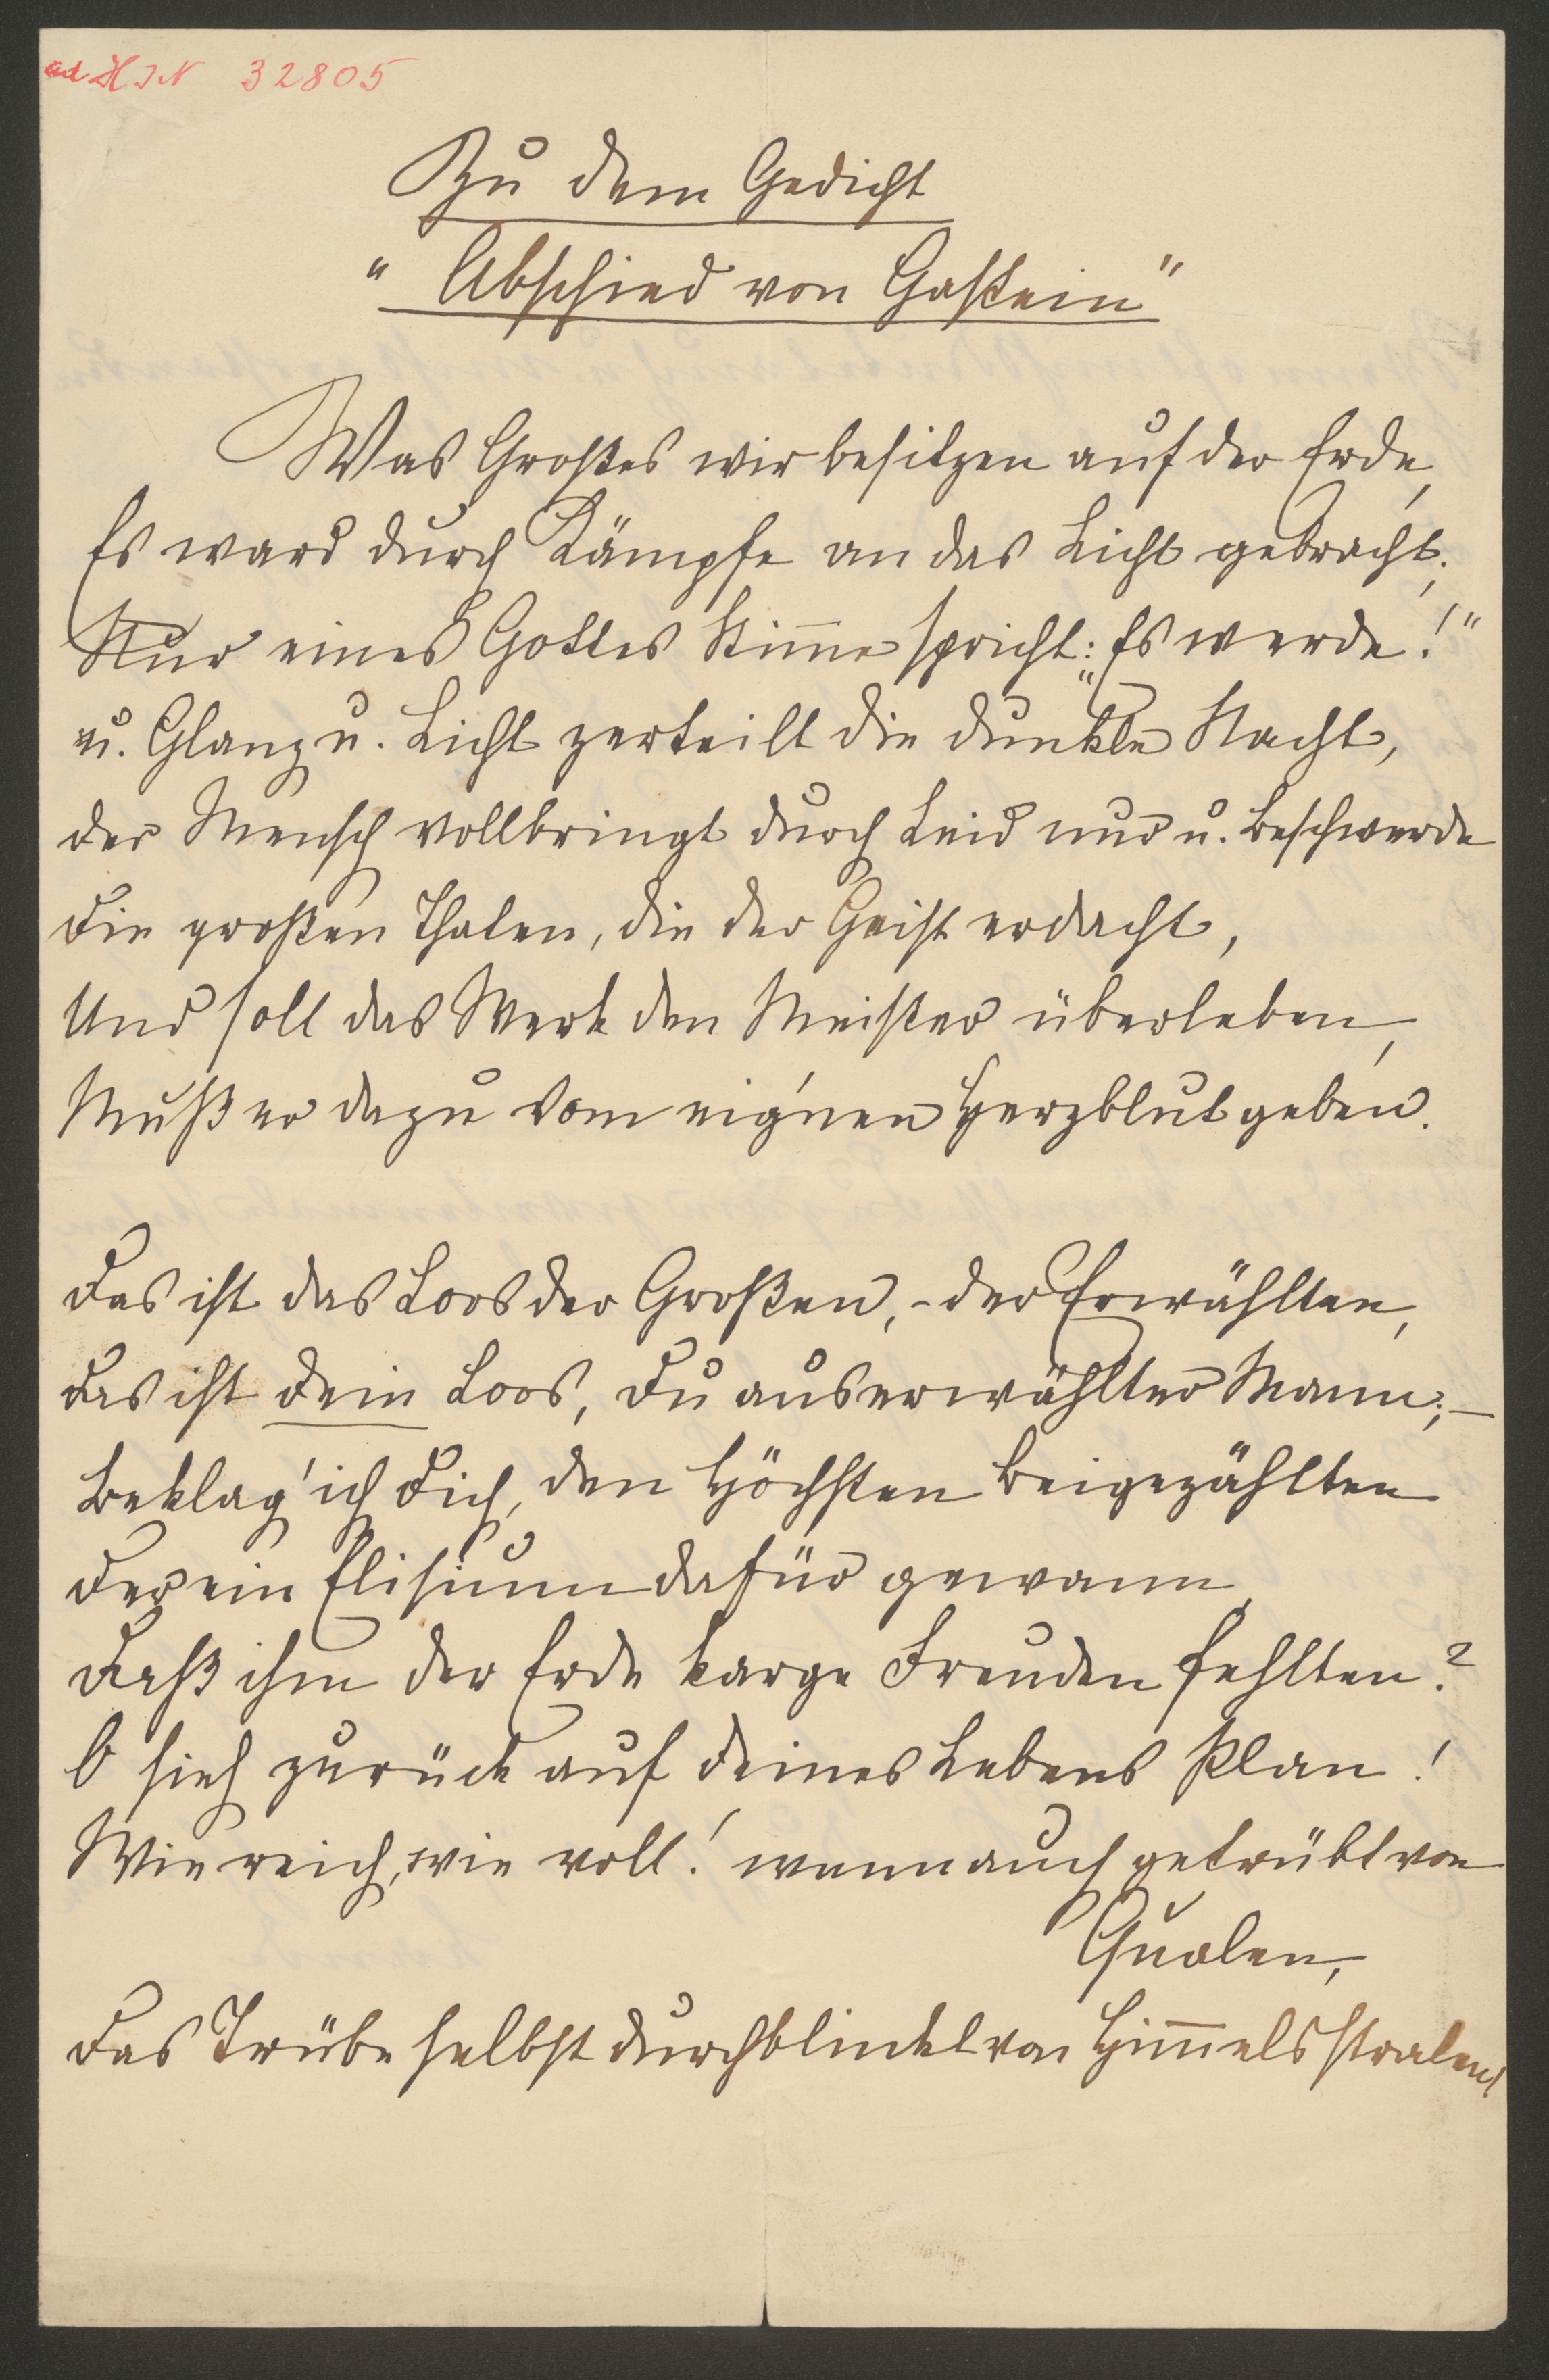 ad H I N 32805
Zu dem Gedicht
"Abschied von Gastein"
Was Großes wir besitzen auf der Erde,
Es ward durch Kämpfe an das Licht gebracht;
Nur eines Gottes Stimme spricht: „Es werde!"
u. Glanz u. Licht zerteilt die dunkle Nacht,
der Mensch vollbringt durch Leid nur u. Beschwerde
Die großen Thaten, die der Geist erdacht,
Und soll das Werk den Meister überleben,
Muß er dazu vom eig'nen Herzblut geben.
Das ist das Loos der Großen, - der Erwählten,
Das ist Dein Loos, Du auserwählter Mann; —
Beklag' ich Dich, den Höchsten Beigezählten
Der ein Elisium dafür gewann,
Daß ihm der Erde karge Freuden fehlten?
O sieh zurück auf Deines Lebens Plan!
Wie reich, wie voll! wenn auch getrübt von
Qualen,
Das Trübe selbst durchblinkt von Himmelsstralen!